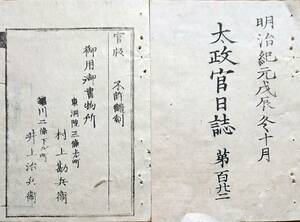 明治紀元戊辰冬十月
太政官日誌 第百廿二
官版 不許翻刻
御用御書物所
東洞院三條上町
村上勘兵衛
堀川二條下ル町
井上治兵衛